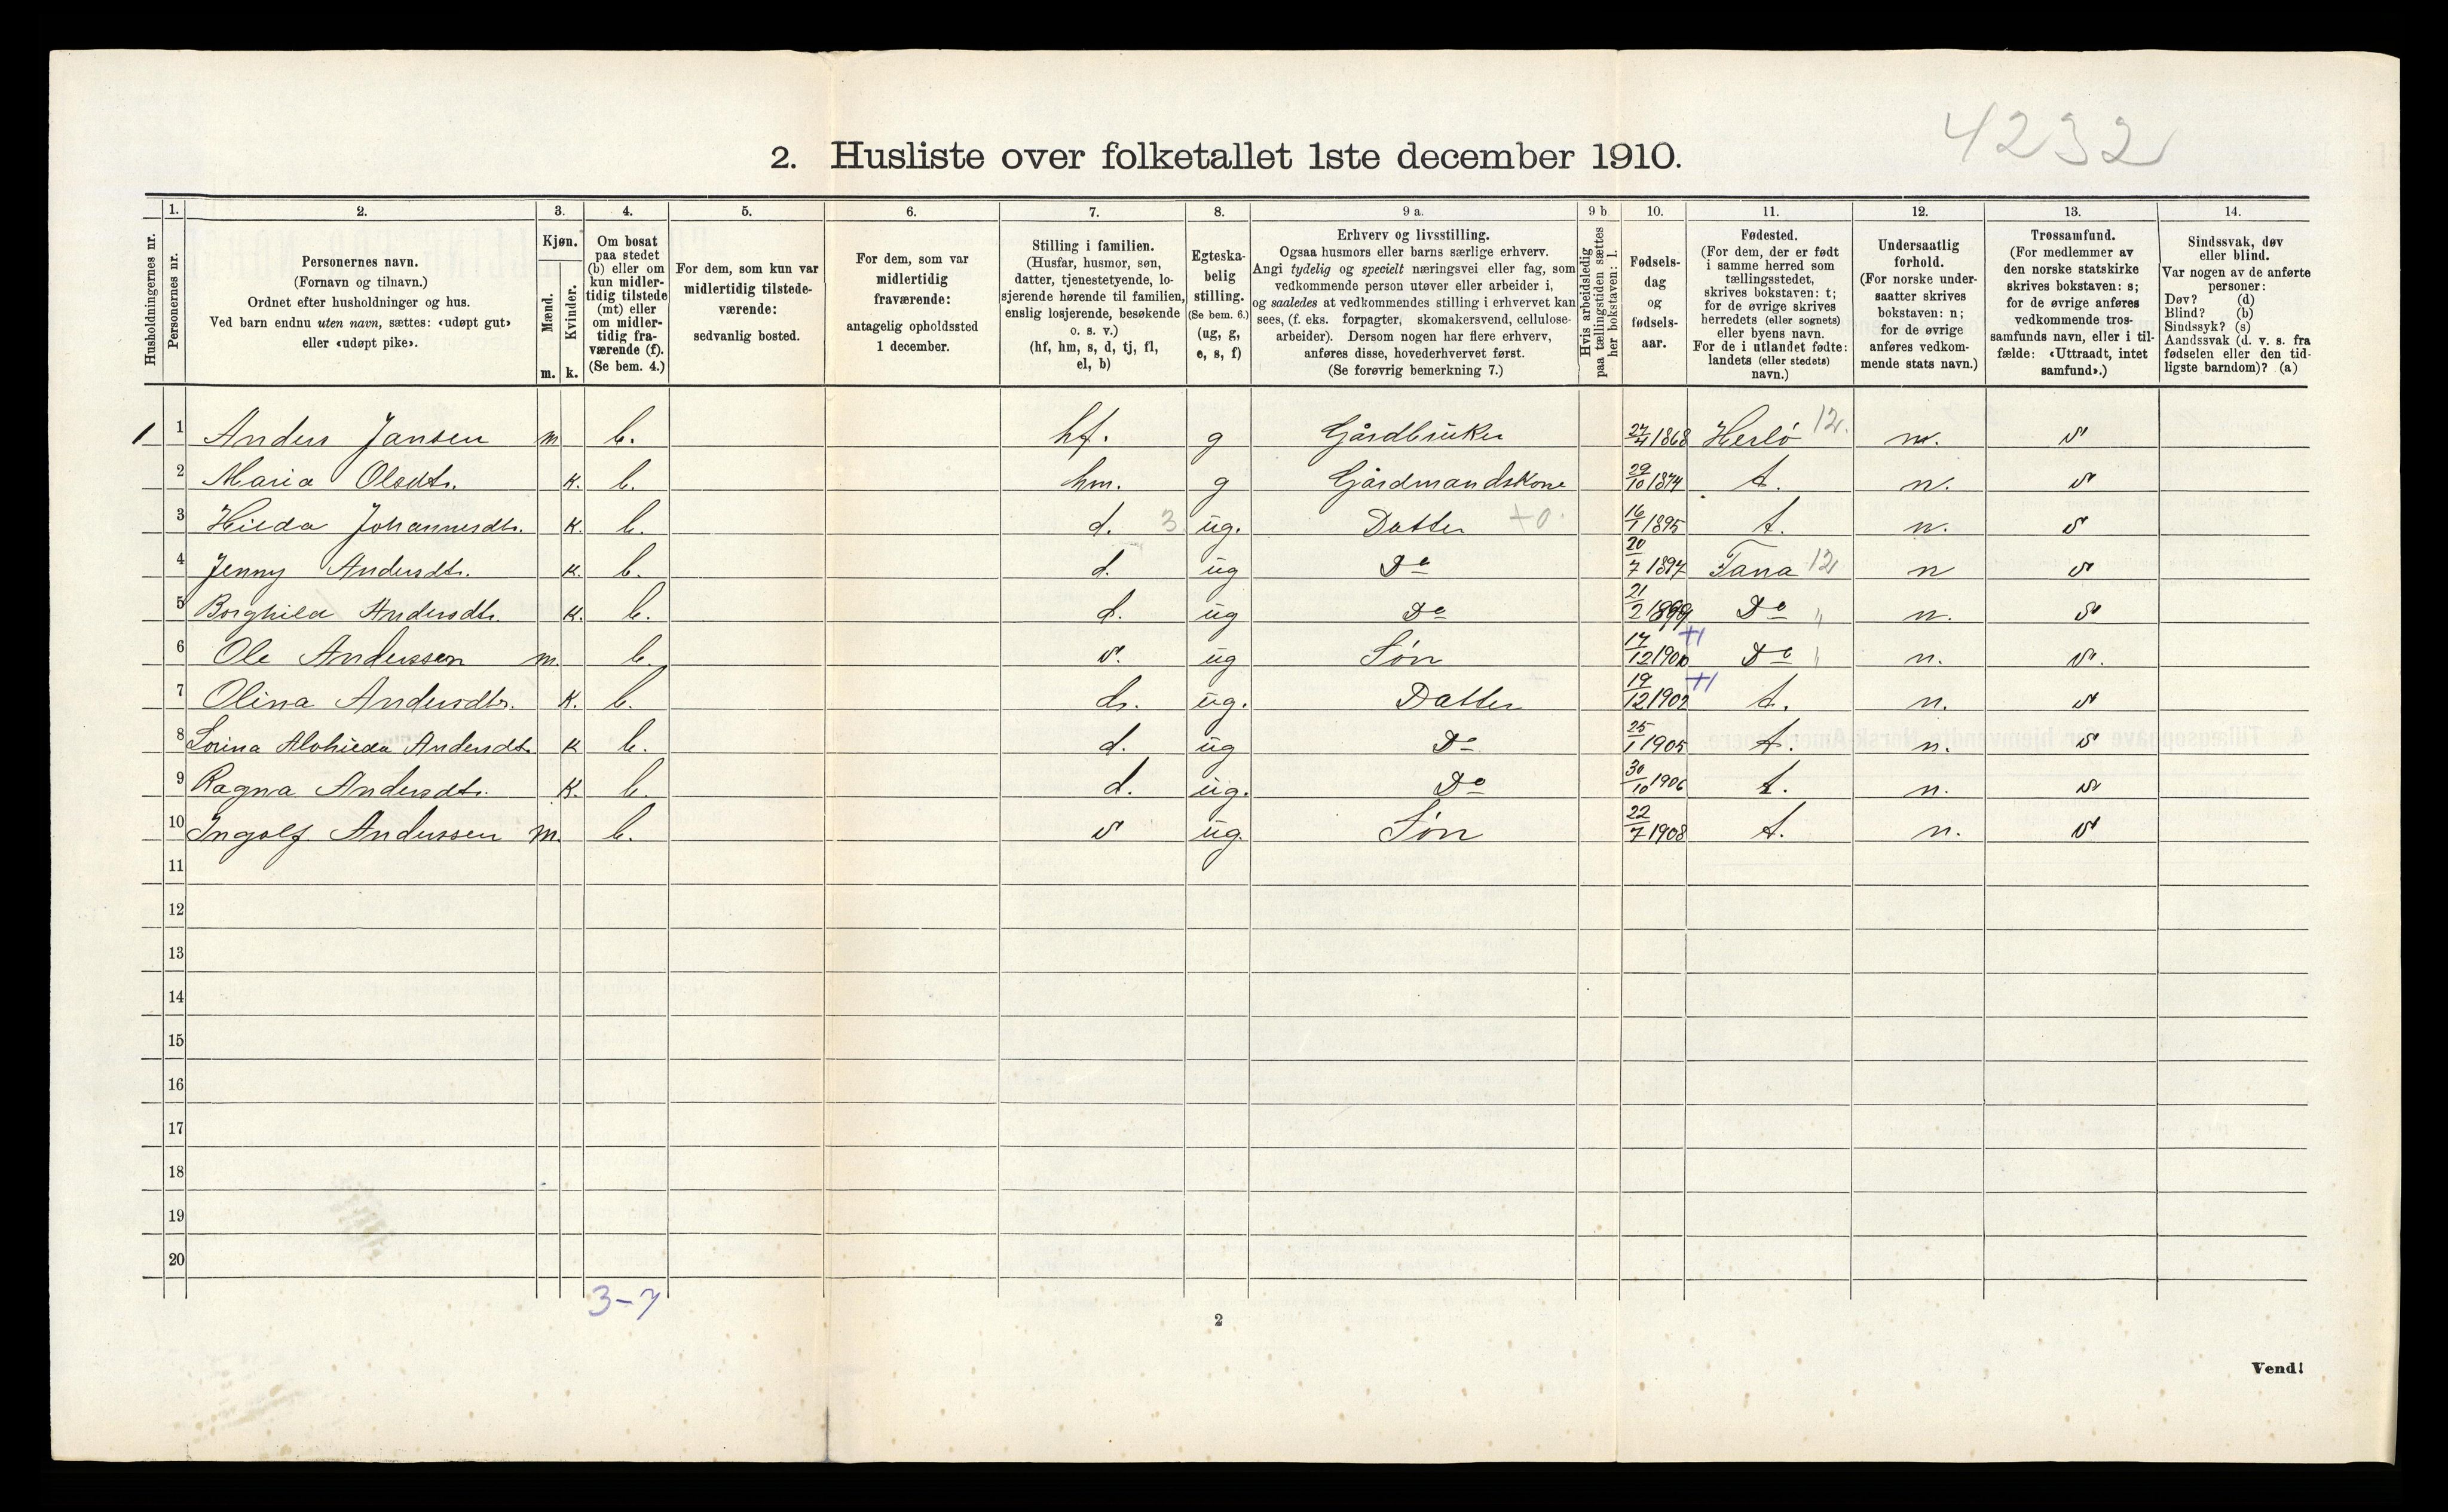 4232
2. Husliste over folketallet 1ste december 1910.
Husholdningernes nr.
1. Personernes nr.
2. Personernes navn.
(Fornavn og tilnavn.)
Ordnet efter husholdninger og hus.
Ved barn endnu uten navn, sættes: «udøpt gut»
eller «udøpt pike».
3. Kjøn.
Mænd. m.
Kvinder. k.
4. Om bosat
paa stedet
(b) eller om
kun midler-
tidig tilstede
(mt) eller
om midler-
tidig fra-
værende (f).
(Se bem. 4.)
5. For dem, som kun var
midlertidig tilstede-
værende:
sedvanlig bosted.
6. For dem, som var
midlertidig
fraværende:
antagelig opholdssted
1 december.
7. Stilling i familien.
(Husfar, husmor, søn,
datter, tjenestetyende, lo-
sjerende hørende til familien,
enslig losjerende, besøkende
o. s. v.)
(hf, hm, s, d, tj, fl,
el, b)
8. Egteska-
belig
stilling.
(Se bem. 6.)
(ug, g,
e, s, f)
9 a. Erhverv og livsstilling.
Ogsaa husmors eller barns særlige erhverv.
Angi tydelig og specielt næringsvei eller fag, som
vedkommende person utøver eller arbeider i,
og saaledes at vedkommendes stilling i erhvervet kan
sees, (f. eks. forpagter, skomakersvend, cellulose-
arbeider). Dersom nogen har flere erhverv,
anføres disse, hovederhvervet først.
(Se forøvrig bemerkning 7.)
9 b. Hvis arbeidsledig
paa tællingstiden sættes
her bokstaven: l.
10. Fødsels-
dag
og
fødsels-
aar.
11. Fødested.
(For dem, der er født
i samme herred som
tællingsstedet,
skrives bokstaven: t;
for de øvrige skrives
herredets (eller sognets)
eller byens navn.
For de i utlandet fødte:
landets (eller stedets)
navn.)
12. Undersaatlig
forhold.
(For norske under-
saatter skrives
bokstaven: n;
for de øvrige
anføres vedkom-
mende stats navn.)
13. Trossamfund.
(For medlemmer av
den norske statskirke
skrives bokstaven: s;
for de øvrige anføres
vedkommende tros-
samfunds navn, eller i til-
fælde: «Uttraadt, intet
samfund».)
14. Sindssvak, døv
eller blind.
Var nogen av de anførte
personer:
Døv? (d)
Blind? (b)
Sindssyk? (s)
Aandssvak (d. v. s. fra
fødselen eller den tid-
ligste barndom)? (a)
1 1 Anders Jansen m b. hf. g Gårdbruker 27/4 1868 Herlö 12. n. s
2 Maria Olsdtr. k. b. hm. g Gårdmandskone 29/10 1874 t. n. s
3 Hilda Johannesdtr. k. b. d. 3 ug. Datter +0. 16/1 1895 t. n. s
4 Jenny Andersdtr. k. b. d. ug Do 20/7 1897 Fana 12 n s
5 Borghild Andersdtr. k. b. d. ug Do 21/2 1899 Do " n. s
6 Ole Anderssen m. b. s. ug Søn 17/12 1900 +1 Do " n. s.
7 Olina Andersdtr. k. b. d. ug. Datter 19/12 1902 +1 t. n. s
8 Andersdtr. k b. d. ug Do 25/1 1905 t. n. s
9 Ragna Andersdtr. k. b. d. ug. Do 30/10 1906 t. n. s
10 Ingolf Anderssen m. b. s ug. Søn 22/7 1908 t. n. s
11
12
13
14
15
16
17
18
19
20
3-7
2
Vend!